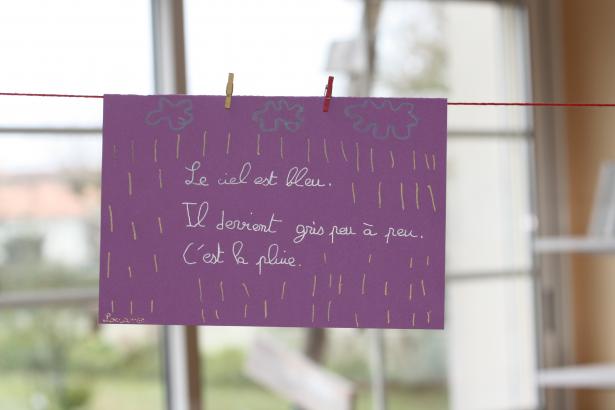 Le ciel est bleu.
Il devient gris peu à peu.
C'est la pluie.